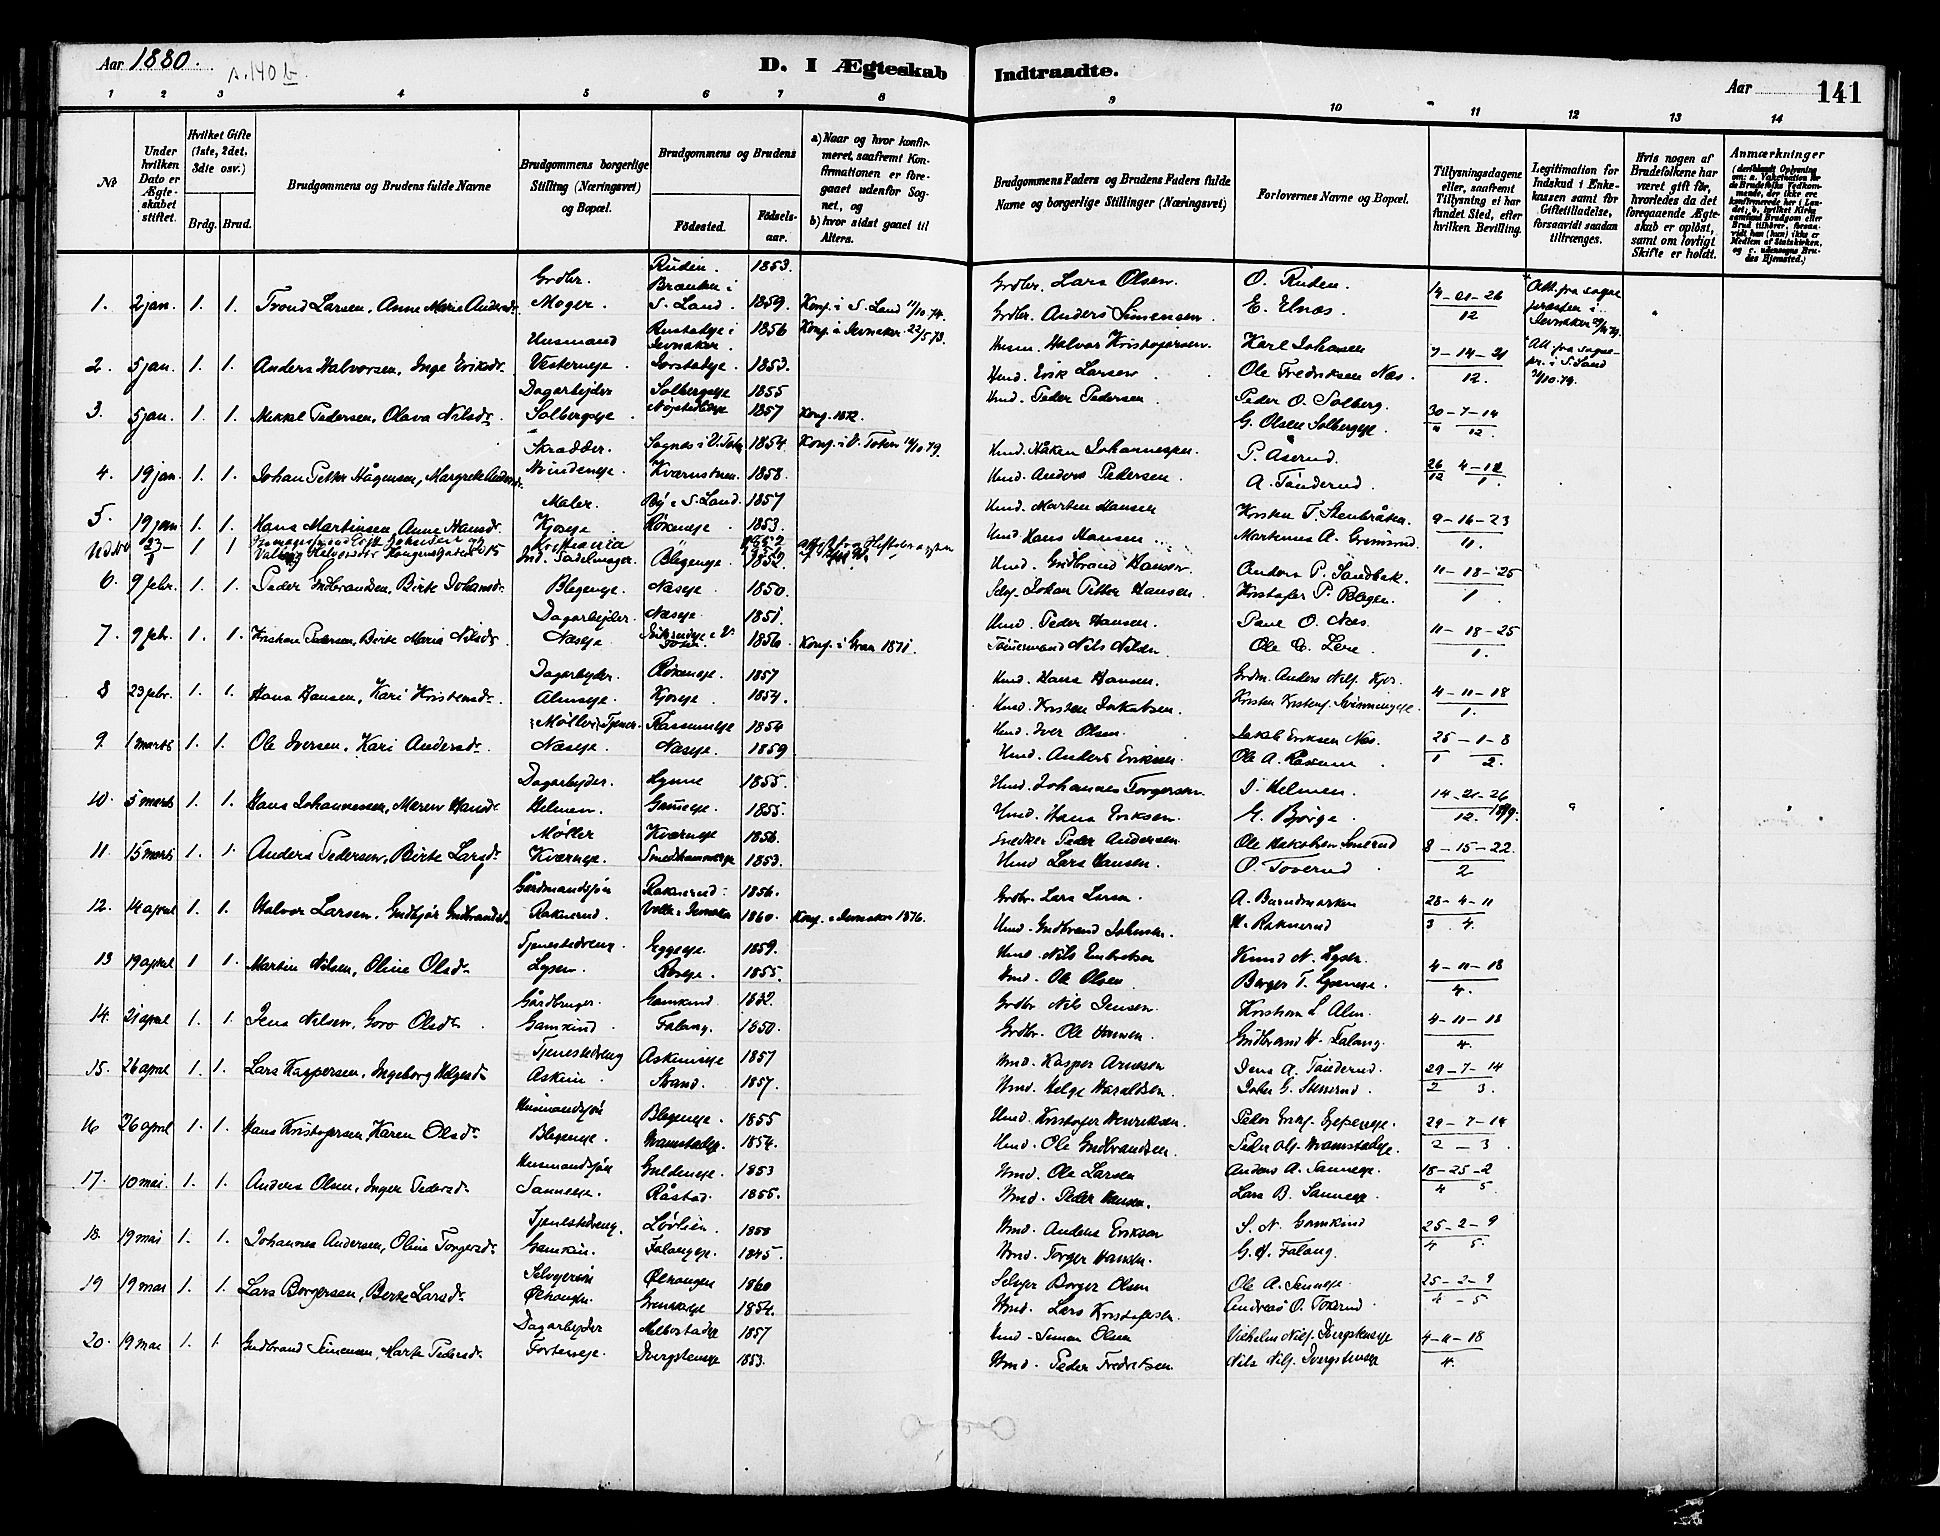 Aar 1880.
D. I Ægteskab Indtraadte.
Aar
141
1 2 3 4 5 6 7 8 9 10 11 12 13 14
No
Under hvilken Dato er Ægteskabet stiftet.
Hvilket Gifte (1ste, 2det, 3die osv.)
Brdg. Brud.
Brudgommens og Brudens fulde Navne
Brudgommens borgerlige Stilling (Næringsvei) og Bopæl.
Brudgommens og Brudens
Fødested.
Fødselsaar.
a) Naar og hvor konfirmeret, saafremt Konfirmationen er foregaaet udenfor Sognet, og
b) hvor sidst gaaet til Alters.
Brudgommens Faders og Brudens Faders fulde Navne og borgerlige Stillinger (Næringsvei)
Forlovernes Navne og Bopæl.
Tillysningsdagene eller, saafremt Tillysning ei har fundet Sted, efter hvilken Bevilling.
Legitimation for Indskud i Enkekassen samt for Giftetilladelse, forsaavidt saadan tiltrænges.
Hvis nogen af Brudefolkene har været gift før, hvorledes da det foregaaende Ægteskab er opløst, samt om lovligt Skifte er holdt.
Anmærkninger
1. 2 jan. 1. 1. Trond Larsen, Anne Marie Andersdr. Grdbr. Moger. Ruden. 1853. Brænken i S. Land. 1859. Konf. i S. Land 11/10 74. Grdbr. Lars Olsen. Grdbr. Anders Simensen. O. Ruden. E. Elnæs. 14-21-26/12 Att. fra sognepræsten i Jevnaker
2. 5 jan. 1. 1. Anders Halvorsen, Inge Eriksdr. Husmand Vesterneje. Rustadeje i Jevnaker. 1856 1853. Konf. i Jevnaker 22/5 73. Husm. Halvor Kristofersen. Hmd. Erik Larsen Karl Johansen Ole Fredriksen Næs. 7-14-21/12. Att. fra sognepr. i S. Land
3. 5 jan. 1. 1. Mikkel Pedersen, Olava Nilsdr. Dagarbejder Solbergeje. Solbergeje 1855 1857 Konf. 1872. Hmd. Peder Pedersen Peder O. Solberg. G. Olsen Solbergeje 30-7-14/12.
4. 19 jan. 1. 1. Johan Petter Hågensen, Margrete Andersdr. Skrædder. Sognes i V. Toten 1854. Kværnstuen. 1858. Konf. i V. Toten Hmd. Håken Johannesen. Hmd. Anders Pedersen P. Åserud. A. Tønderud. 26/12 4-11/1.
5. 19 jan. 1. 1. Hans Martinsen, Anne Hansdr. Maler. Kjoseje By i S. Land. 1857 Røkeneje 1853. Hmd. Marten Hansen Hmd. Hans Hansen Kristen T. Stenbråten. Martinus A. Grimsrud. 9-16-23/11.
1 1 Kristiania 1852
6. 9 febr. 1. 1. Peder Gudbrandsen, Birte Johansdr. Ind. Sadelmager. Blegeneje. Blegeneje. 1852. Næseje. 1850. Hmd. Gudbrand Hansen. Selvej. Johan Petter Hansen. Anders P. Sandbæk. Kristofer P. Blegen. 11-18-25/1.
7. 9 febr. 1. 1. Kristian Pedersen, Birte Marie Nilsdr. Dagarbejder. Næseje. Næseje 1851. 1856. Konf. i Gran 1871. Hmd. Peder Hansen. Tømmermand Nils Nilsen Paul O. Næs. Ole O. Lere. 11-18-25/1.
8 23 febr. 1. 1. Hans Hansen, Kari Kristensdr. Dagarbejder. Almseje. Røkeneje. 1857 Kjoseje. 1854. Hmd. Hans Hansen. Hmd. Kristen Jakobsen. Grdm. Anders Nils. Kjos. 4-11-18/1.
9. 1 marts 1. 1. Ole Iversen, Kari Andersdr. Møller, Tjener. Næseje. Rassumeje 1854 Næseje. 1859 Hmd. Iver Olsen. Hmd. Anders Eriksen. Jakob Eriksen Næs. Ole A. Rassum 25/1 -1-8/2.
10. 5 marts 1. 1. Hans Johannessen, Maren Hansdr. Dagarbejder. Helmen. Lynne 1855. Gauneje. 1855. Hmd. Johannes Torgersen. Hmd. Hans Eriksen. I. Helmen. G. Bjørge. 14-21-26/12. 1879.
11. 15 marts 1. 1. Anders Pedersen, Birte Larsdr. Møller Kværneje. Kværneje 1856. Smedshammereje 1853. Snedker Peder Andersen Hmd Lars Hansen. Ole Jakobsen Smerud O. Toverud. 8-15-22./2
12. 14 april 1. 1. Halvor Larsen, Gudbjør Gudbrandsdr. Gårdmandssøn Raknerud. Raknerud. 1856. Volla i Jevnaker 1860. Konf. i Jevnaker 1876. Grdbr. Lars Larsen. Hmd. Gudbrand Johnsen. A. Bundmarken H. Raknerud 28-4-11/3 4.
13 19 april 1 1. Martin Nilsen, Oline Olsdr. Tjenestedreng. Lysen. Eggeeje. 1859. Roseje. 1855. Hmd. Nils Embretsen Hmd. Ole Olsen Knud N. Lysen. Borger T. Lyseneje 4-11-18/4.
14. 21 april 1. 1. Jens Nilsen, Goro Olsdr. Gårdbruger. Gamkind. Gamkind. 1832. Falang. 1850. Grdbr. Nils Jensen Grdbr. Ole Hansen. Kristian L. Alm. Gudbrand H. Falang. 4-11-18/4.
15. 26 april 1. 1. Lars Kaspersen, Ingeborg Helgesdr. Tjenestedreng Askim. Askimeje 1857 Strand. 1857. Hmd. Kasper Arnesen Hmd. Helge Haraldsen. Jens A. Tønderud. John G. Stenerud. 29-7-14/2 3.
16 26 april 1. 1. Hans Kristofersen Karen Olsdr. Husmandssøn Blegeneje. Blegeneje. 1855 Framstadeje. 1854. Hmd. Kristofer Henriksen. Hmd. Ole Gudbrandsen. 29-7-14/2-3.
17. 10 mai 1. 1. Anders Olsen, Inger Pedersdr. Husmandssøn Sanneeje. Guldeneje. 1853 Råstad. 1855. Hmd. Ole Larsen Hmd. Peder Hansen. Anders A. Sanneeje. Lars B. Sanneeje 18-25-2/4 5.
18. 19 mai 1. 1. Johannes Andersen, Oline Torgersdr. Tjenestedreng. Gamkin. Løvlien. 1850 Falangeje. 1845. Hmd. Anders Eriksen Hmd. Torger Hansen. S. N. Gamkind G. H. Falang. 25-2-9/4 5.
19 19 mai 1. 1. Lars Borgersen, Berte Larsdr. Selvejersøn Ølhaugen. Ølhaugen 1860 Grenaseje 1854. Selvejer Borger Olsen Hmd. Lars Kristofersen. Ole A. Sanneeje. Andreas O. Toverud. 25-2-9/4-5
20. 19 mai 1. 1. Gudbrand Simensen, Marte Pedersdr. Dagarbejder Forteneje. Melbostadeje 1857 Dvergsteneje 1853. Hmd. Simen Olsen Hmd. Peder Fredriksen Vilhelm Nils. Dvergsteneje Nils Nils. Dvergsteneje 4-11-18/4.